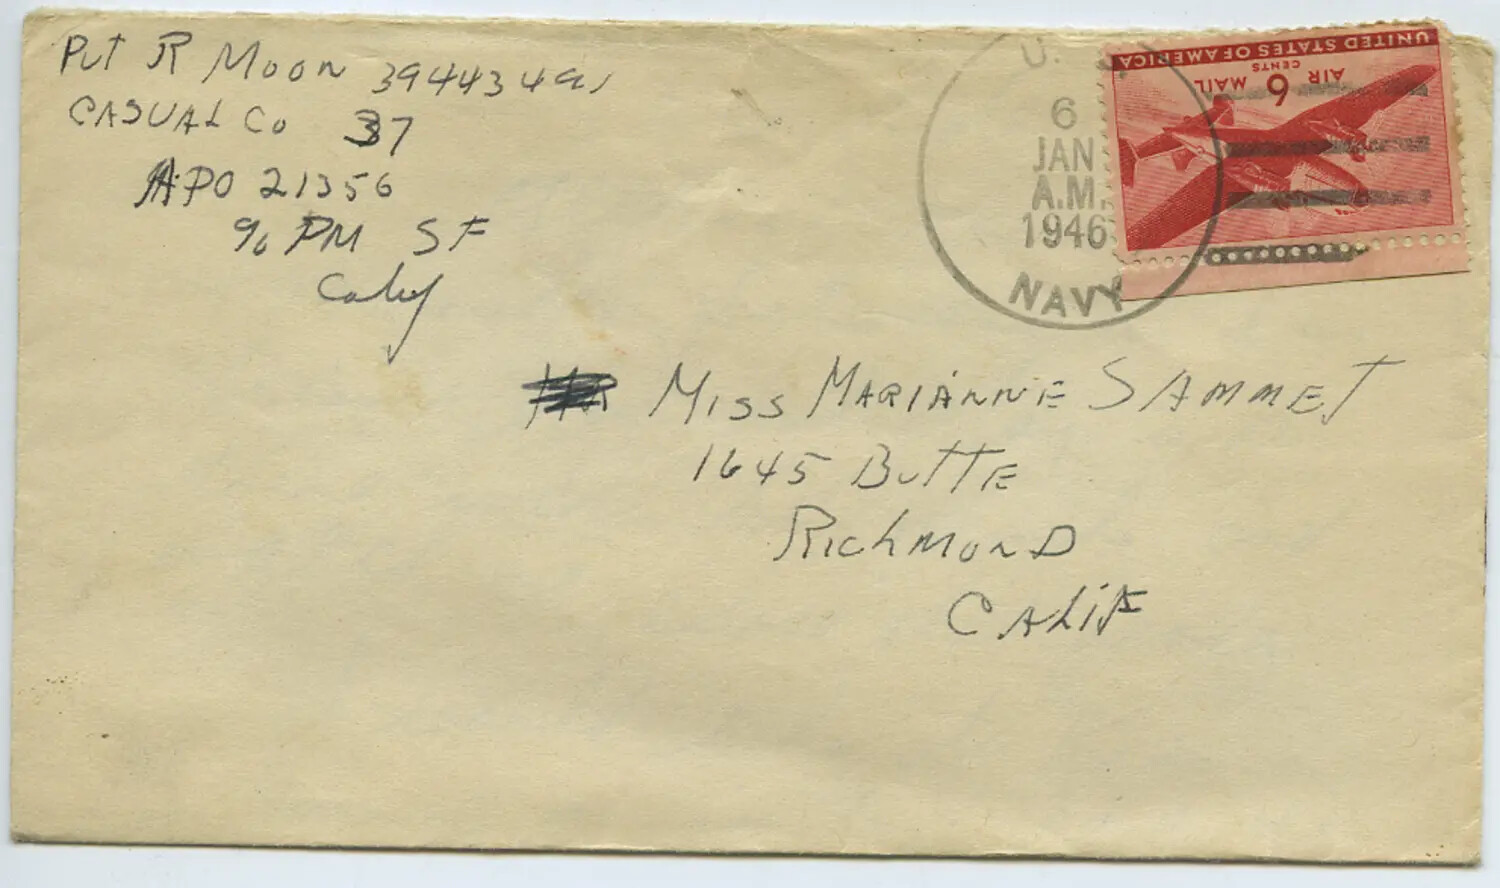 Pvt R Moon 39443491
CASUAL Co 37
APO 21356
% PM SF
Calif
U. S.
6
JAN
A.M.
1946
NAVY
UNITED STATES OF AMERICA
6 CENTS
AIR MAIL
Miss MARIANNE SAMMET
1645 BUTTE
RICHMOND
CALIF